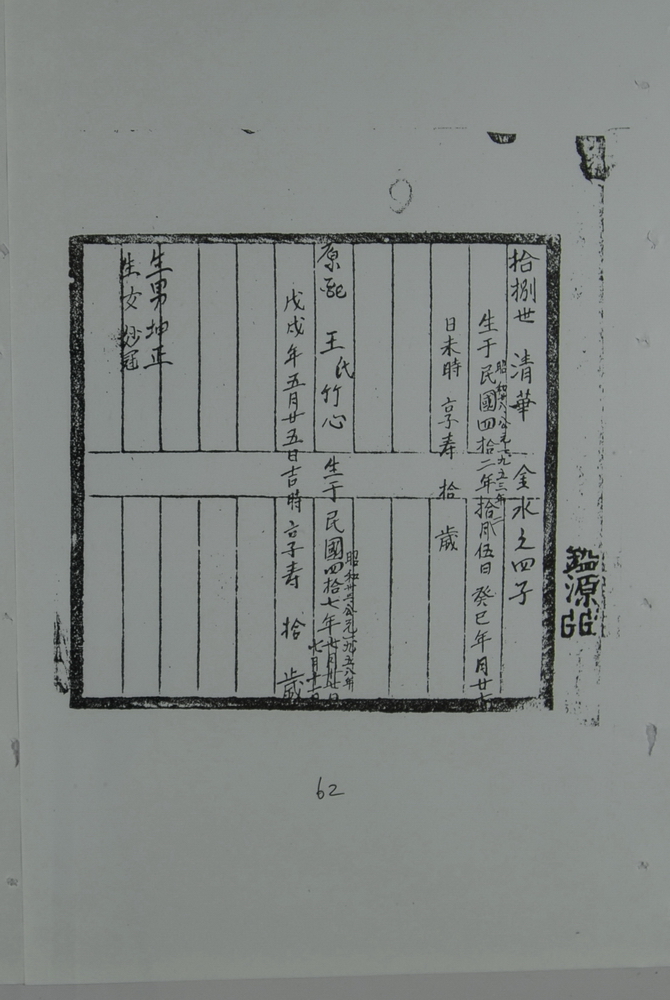 拾捌世 清華 金水之四子
生于民國四拾二年拾月伍日 癸巳年 月廿
日未時 享寿 拾 歲
原配 王氏竹心 生于民國四拾七年七月日
昭和卅三公元一九五八年
七月十一日
戊戌年五月廿五日吉時享寿 拾 歲
生男坤正
生女妙冠
鑑源
GG
62